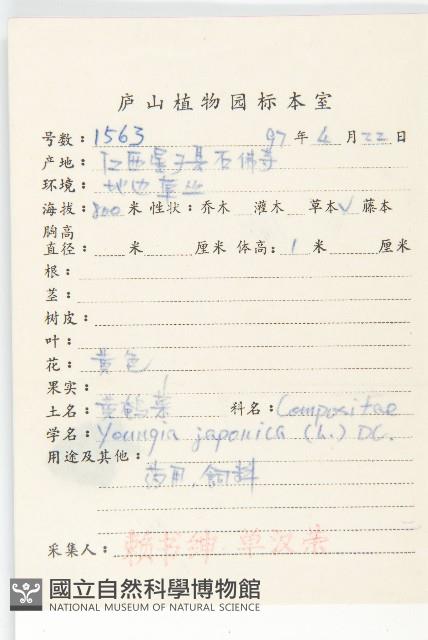 庐山植物园标本室
号数：1563 97年4月22日
产地：江西星子县石佛寺
环境：草丛
海拔：800米 性状：乔木 灌木 草本√ 藤本
胸高
直径： 米 厘米 体高：1米 厘米
根：
茎：
树皮：
叶：
花：黄色
果实：
土名：黄鹌菜 科名：Compositae
学名：Youngia japonica (L.) DC.
用途及其他：
药用、饲料
采集人：赖书绅 单汉荣
國立自然科學博物館
NATIONAL MUSEUM OF NATURAL SCIENCE